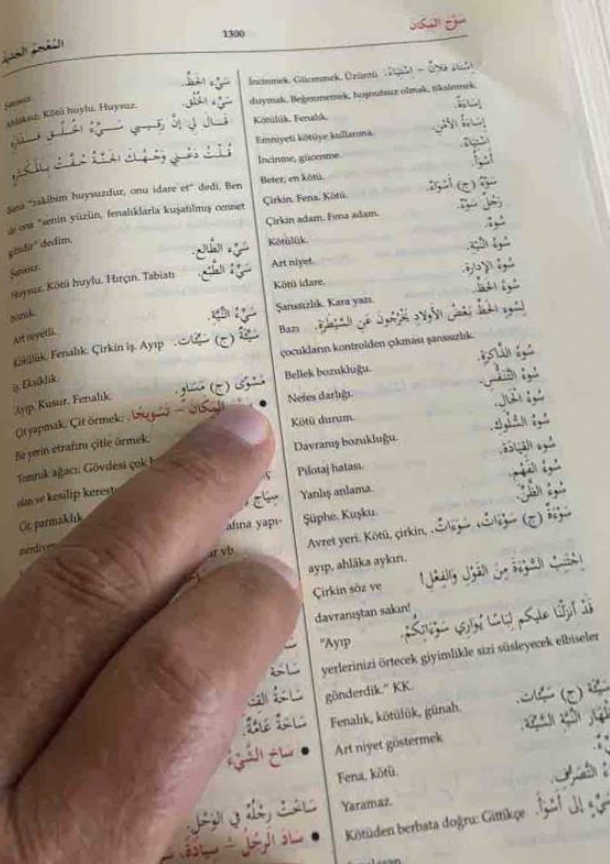 المُعْجَمُ
1300
سَوَّجَ المَكَانَ
İncinmek. Gücenmek. Üzüntü اِسْتَاءَ فُلَانٌ – اِسْتِيَاءً.
duymak. Beğenmemek, hoşnutsuz olmak, tiksinmek.
Kötülük. Fenalık. إِسَاءَةٌ.
Emniyeti kötüye kullanma. إِسَاءَةُ الأَمْنِ.
İncinme, gücenme. اِسْتِيَاءٌ.
Beter, en kötü. أَسْوَأُ.
Çirkin. Fena. Kötü. سَوْءٌ (ج) أَسْوَاءٌ.
Çirkin adam. Fena adam. رَجُلُ سَوْءٍ.
Kötülük. سُوءٌ.
Art niyet. سُوءُ النِّيَّةِ.
Kötü idare. سُوءُ الإِدَارَةِ.
Şanssızlık. Kara yazı. سُوءُ الحَظِّ.
Bazı لِسُوءِ الحَظِّ بَعْضُ الأَوْلَادِ يَخْرُجُونَ عَنِ السَّيْطَرَةِ.
çocukların kontrolden çıkması şanssızlık.
Bellek bozukluğu. سُوءُ الذَّاكِرَةِ.
Nefes darlığı. سُوءُ التَّنَفُّسِ.
Kötü durum. سُوءُ الحَالِ.
Davranış bozukluğu. سُوءُ السُّلُوكِ.
Pilotaj hatası. سُوءُ القِيَادَةِ.
Yanlış anlama. سُوءُ الفَهْمِ.
Şüphe. Kuşku. سُوءُ الظَّنِّ.
Avret yeri. Kötü, çirkin, سَوْءَةٌ (ج) سَوْءَاتٌ، سَوْءَاتٌ.
ayıp, ahlâka aykırı.
Çirkin söz ve اِجْتَنِبِ السَّوْءَةَ مِنَ القَوْلِ وَالفِعْلِ!
davranıştan sakın!
"Ayıp قَدْ أَنْزَلْنَا عَلَيْكُمْ لِبَاسًا يُوَارِي سَوْءَاتِكُمْ.
yerlerinizi örtecek giyimlikle sizi süsleyecek elbiseler
gönderdik." KK.
Fenalık, kötülük, günah. سَيِّئَةٌ (ج) سَيِّئَاتٌ.
Art niyet göstermek النِّيَّةِ السَّيِّئَةِ.
Fena, kötü.
Yaramaz. التَّصَرُّفِ.
Kötüden berbata doğru: Gittikçe إِلَى أَسْوَأَ.
Şanssız. سَيِّءُ الحَظِّ.
Ahlâksız. Kötü huylu. Huysuz. سَيِّءُ الخُلُقِ.
قَالَ لِي إِنَّ رَقِيبِي سَيِّءُ الخُلُقِ فَدَارِهِ
قُلْتُ دَعْنِي وَجْهُكَ الجَنَّةُ حُفَّتْ بِالمَكَارِهِ
Bana "rakibim huysuzdur, onu idare et" dedi. Ben
de ona "senin yüzün, fenalıklarla kuşatılmış cennet
gibidir" dedim.
Şanssız. سَيِّءُ الطَّالِعِ.
Huysuz. Kötü huylu. Hırçın. Tabiatı سَيِّءُ الطَّبْعِ.
bozuk.
Art niyetli. سَيِّءُ النِّيَّةِ.
Kötülük. Fenalık. Çirkin iş. Ayıp سَيِّئَةٌ (ج) سَيِّئَاتٌ.
iş. Eksiklik.
Ayıp. Kusur. Fenalık. مَسْوَى (ج) مَسَاوٍ.
Çit yapmak. Çit örmek: المَكَانَ – تَسْوِيجًا. •
Bir yerin etrafını çitle örmek.
Tomruk ağacı: Gövdesi çok
olan ve kesilip kereste
Çit, parmaklık سِيَاجٌ
merdiven afına yapı-
ar vb.
سَاحَةٌ
سَاحَةُ
سَاحَةٌ عَامَّةٌ.
سَاخَ الشَّيْءُ •
سَاخَتْ رِجْلُهُ فِي الوَحْلِ.
سَادَ الرَّجُلُ – سِيَادَةً •